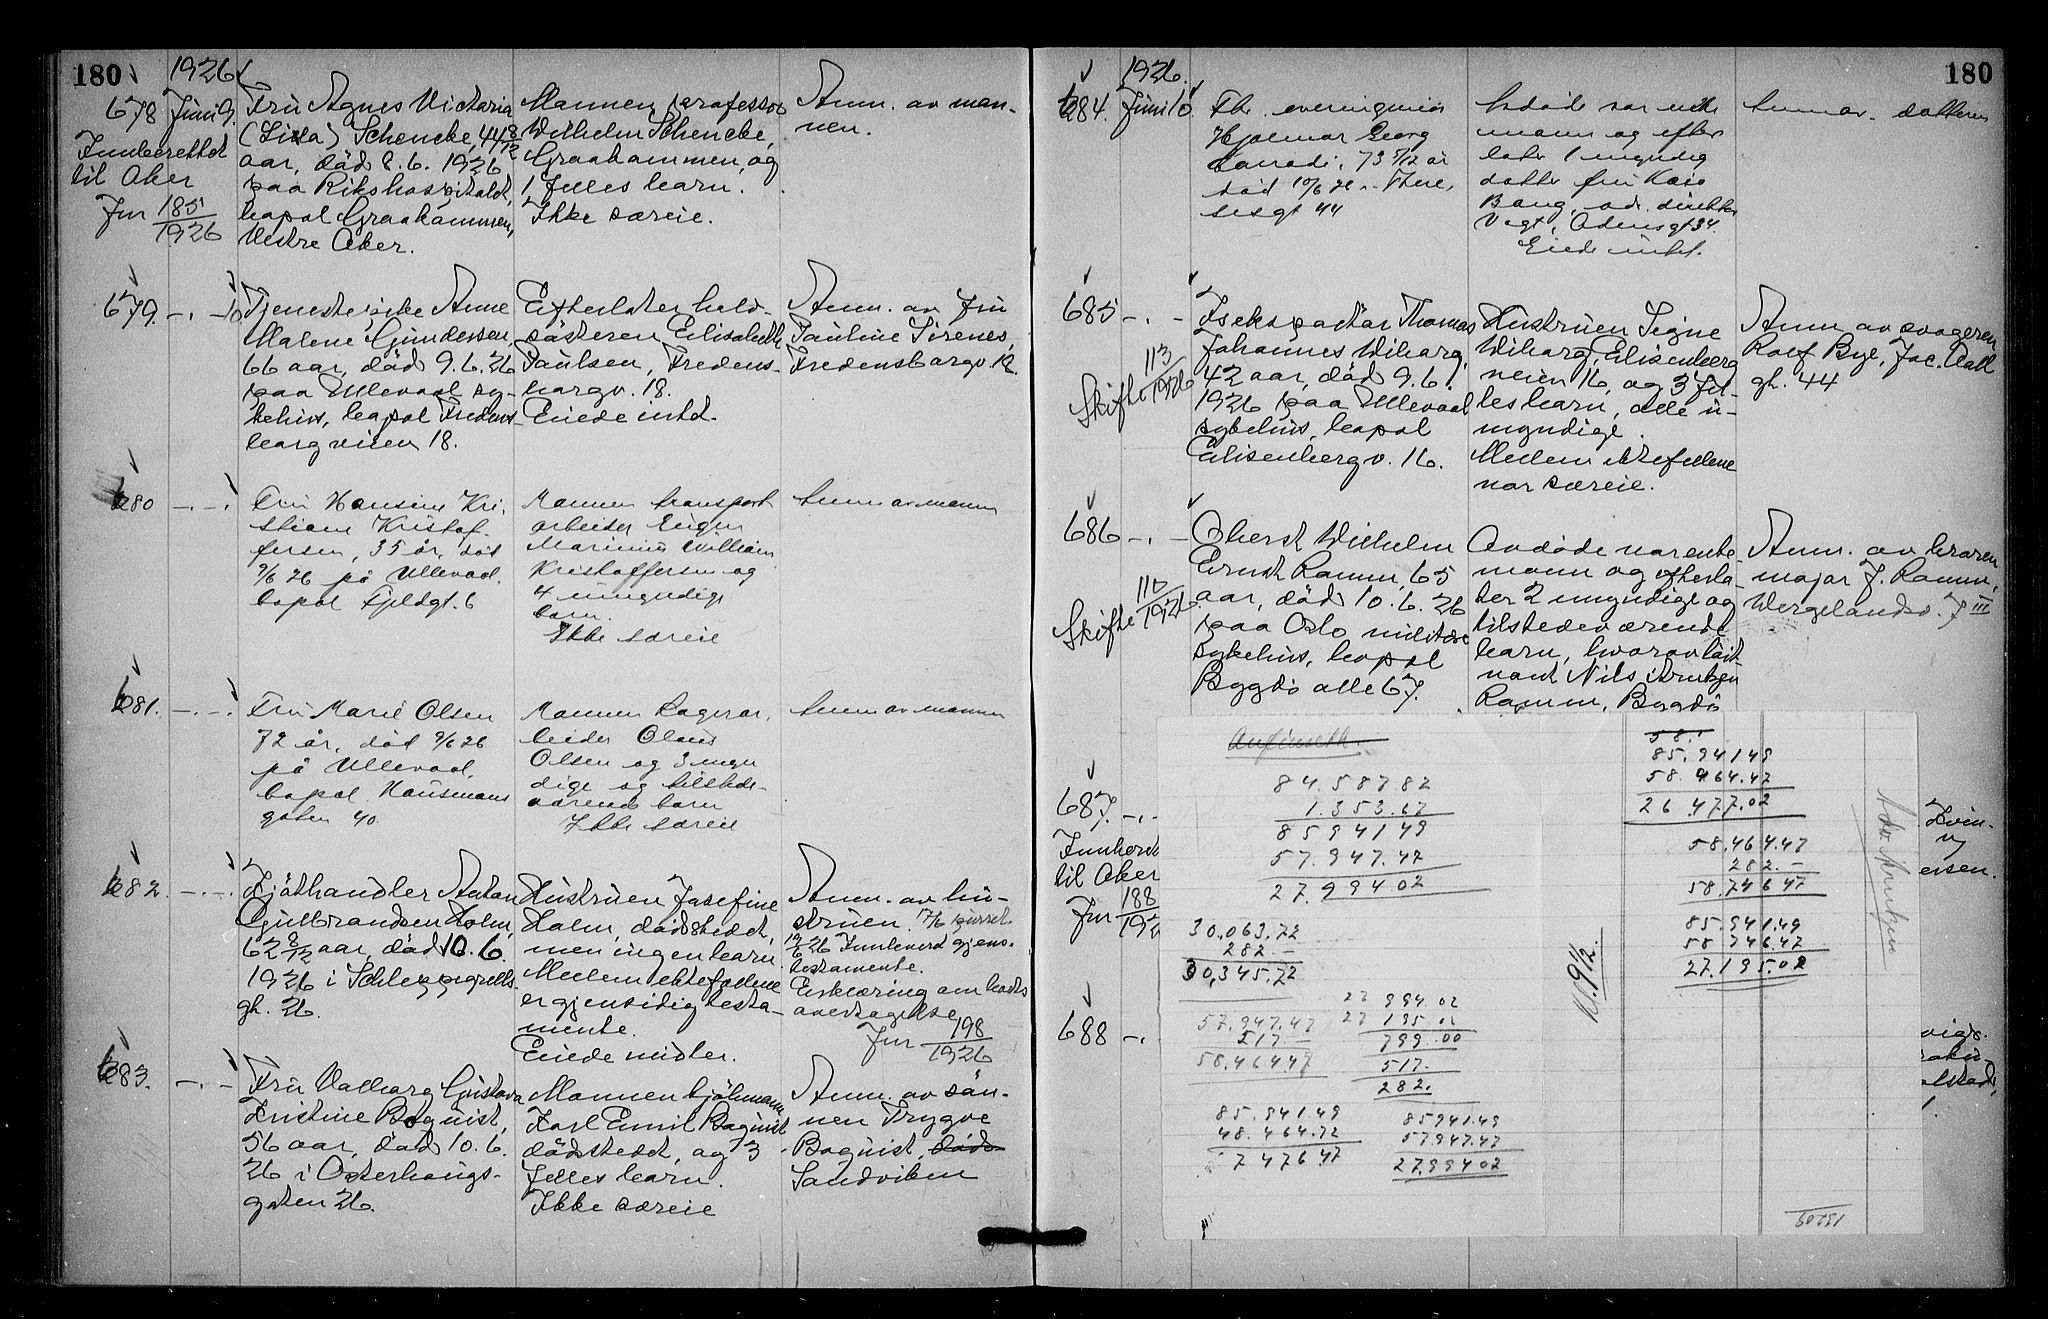 180
1926
678 Juni 9.
Innberettet
til Aker
Jnr 185/1926
Fru Agnes Victoria
(Lixa) Schencke, 44 8/12
aar, död 8.6.1926
paa Rikshospitalet,
bopæl Graakammen,
Vestre Aker.
Mannen professor
Wilhelm Schencke,
Graakammen, og
1 felles barn.
Ikke særeie.
Anm. av man-
nen.
679. -.- 10
Tjenestepike Anne
Malene Gundersen
66 aar, död 9.6.26
paa Ullevaal sy-
kehus, bopæl Fredens-
borgveien 18.
Efterlater hel-
søsteren Elisabeth
Paulsen, Fredens-
borgv. 18.
Eiede intet.
Anm. av fru
Pauline Sirenes,
Fredensborgv. 18.
680 -.-.
Fru Hansine Kri-
stiane Kristof-
fersen, 35 år, död
9/6 26 på Ullevaal,
bopæl Fjeldgt. 6
Mannen transport
arbeider Eugen
Marinius William
Kristoffersen og
4 umyndige
barn.
Ikke særeie
Anm av mannen
681. -.-.
Fru Marie Olsen
72 år, död 9/6 26
på Ullevaal,
bopæl Hausmans
gaten 40.
Mannen Lagerar-
beider Olaus
Olsen og 3 myn
dige og tilstede-
værende barn
Ikke særeie
Anm av mannen
682. -.-.
Kjöthandler Anton
Gulbrandsen Holm,
62 8/12 aar, död 10.6.
1926 i Schleppegrells-
gt. 26.
Hustruen Josefine
Holm, dödstedet,
men ingen barn.
Mellem ektefellene
er gjensidig testa-
mente.
Eiede midler.
Anm. av hu-
struen. 17/6
Innlevert gjens.
testamente.
Erklæring om boets
overtagelse
Jnr 198/1926
683. -.-
Fru Valborg Gustava
Kristine Boquist,
56 aar, död 10.6.
26 i Osterhaugs-
gaten 26.
Mannen sjömann
Karl Emil Boquist
dödstedet, og 3
felles barn.
Ikke særeie
Anm. av søn-
nen Trygve
Boquist, döds
Sandviken
180
1926.
684. Juni 10
Hjalmar Georg
73 5/12 år
död 10/6 26. There-
sesgt 44
Avdøde var enke
mann og efter
later 1 myndig
datter fru Kaia
Bang, adr. direktør
Vogt, Odinsgt 34.
Eiede intet.
Anm av datteren
685 -.-
Skifte 113/1926
Isekspaktör Thomas
Johannes Wiborg,
42 aar, död 9.6.
1926 paa Ullevaal
sykehus, bopæl
Elisenbergv. 16.
Hustruen Signe
Wiborg, Elisenberg
veien 16, og 3 fel-
les barn, alle u-
myndige.
Mellem ektefellene
var særeie.
Anm av svogeren
Rolf Bye, Jac. Aall
gt. 44
686 -.-
Skifte 112/1926
Oberst Wilhelm
Ernst Ramm, 65
aar, död 10.6.26
paa Oslo militære
sykehus, bopæl
Bygdö alle 67.
Avdöde var enke-
mann og efterla-
ter 2 myndige og
tilstedeværende
barn, hvorav löit-
nant Nils
Ramm, Bygdö
Anm. av broren
major J. Ramm,
Wergelandsv. 7 III
687. -.-
Innberet
til Aker
Jnr 188
ersen.
688 -.
84.58782
1.353.67
8594149
57.947.47
27.99402
30.063.72
282.-
30,345.72
57.947.47
517.-
58.464.47
27 994.02
27 195.02
799.00
517.
282.
85.941.49
48.464.72
7476.47
85941.49
57.947.47
27.99402
58.
85.94149
58.464.47
26.477.02
58.464.47
282.-
58.74647
85.941.49
58 746.47
27.195.02
10.9 1/2
60251